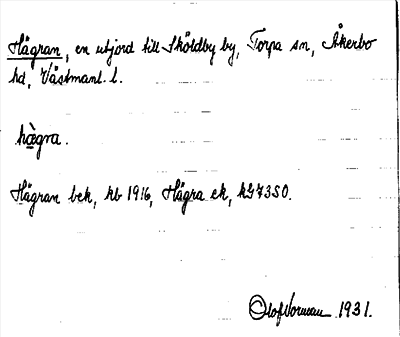 Hägran, en utjord till Sköldby by, Torpa sn, Åkerbo
hd, Västmanl. l.
hägra.
Hägran bek, kb 1916, Hägra ek,
Olof 1931.